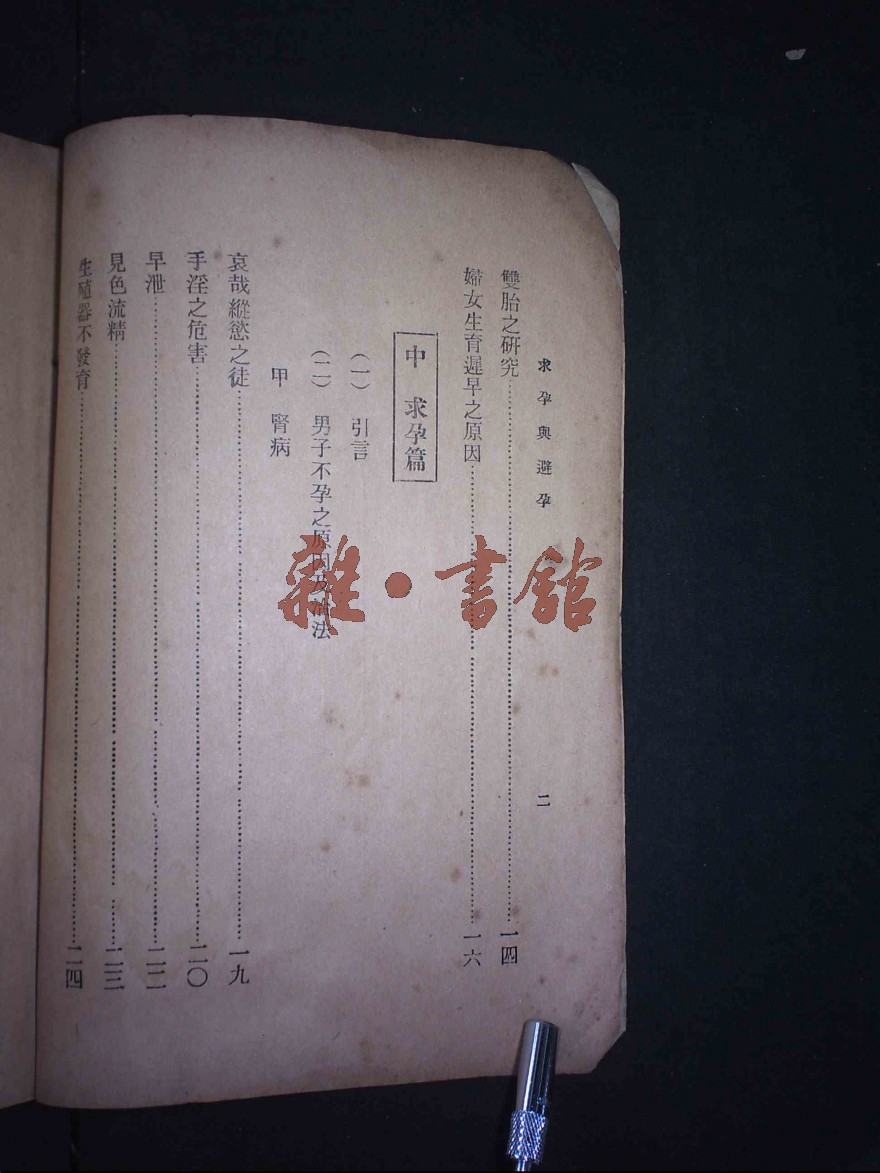 求孕與避孕 二
雙胎之研究 一四
婦女生育遲早之原因 一六
中 求孕篇
(一) 引言
(二) 男子不孕之原因及治法
甲 腎病
哀哉縱慾之徒 一九
手淫之危害 二〇
早泄 二二
見色流精 二三
生殖器不發育 二四
雜・書館